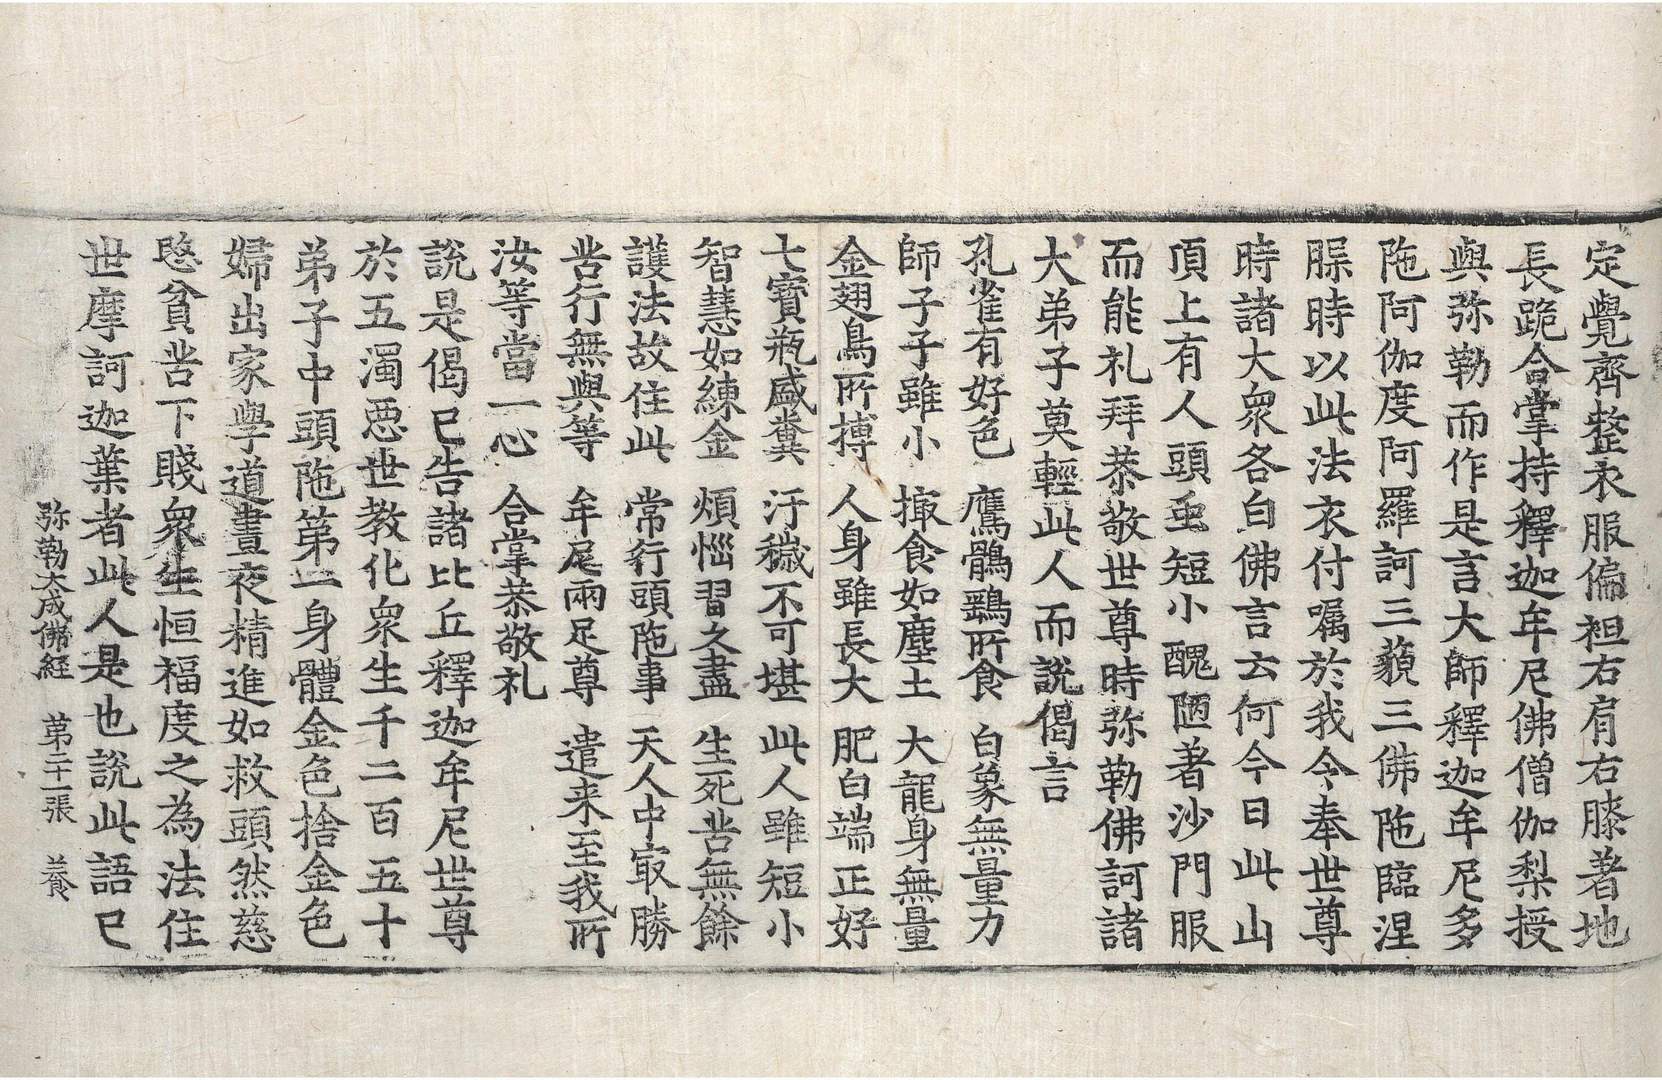 定覺齊整衣服偏袒右肩右膝著地
長跪合掌持釋迦牟尼佛僧伽梨授
與弥勒而作是言大師釋迦牟尼多
陁阿伽度阿羅訶三藐三佛陁臨涅
𣊬時以此法衣付嘱於我令奉世尊
時諸大衆各白佛言云何今日此山
頂上有人頭䖝短小醜陋著沙門服
而能礼拜恭敬世尊時弥勒佛訶諸
大弟子莫輕此人而說偈言
孔雀有好色 鷹鶻鷂所食 白象無量力
師子子雖小 撮食如塵土 大龍身無量
金翅鳥所搏 人身雖長大 肥白端正好
七寶瓶盛糞 汙穢不可堪 此人雖短小
智慧如練金 煩惱習久盡 生死苦無餘
護法故住此 常行頭陁事 天人中㝡勝
苦行無與等 牟尼兩足尊 遣来至我所
汝等當一心 合掌恭敬礼
說是偈已告諸比丘釋迦牟尼世尊
於五濁惡世教化衆生千二百五十
弟子中頭陁第一身體金色捨金色
婦出家學道晝夜精進如救頭然慈
愍貧苦下賤衆生恒福度之為法住
世摩訶迦葉者此人是也說此語已
弥勒大成佛經 第二十一張 養